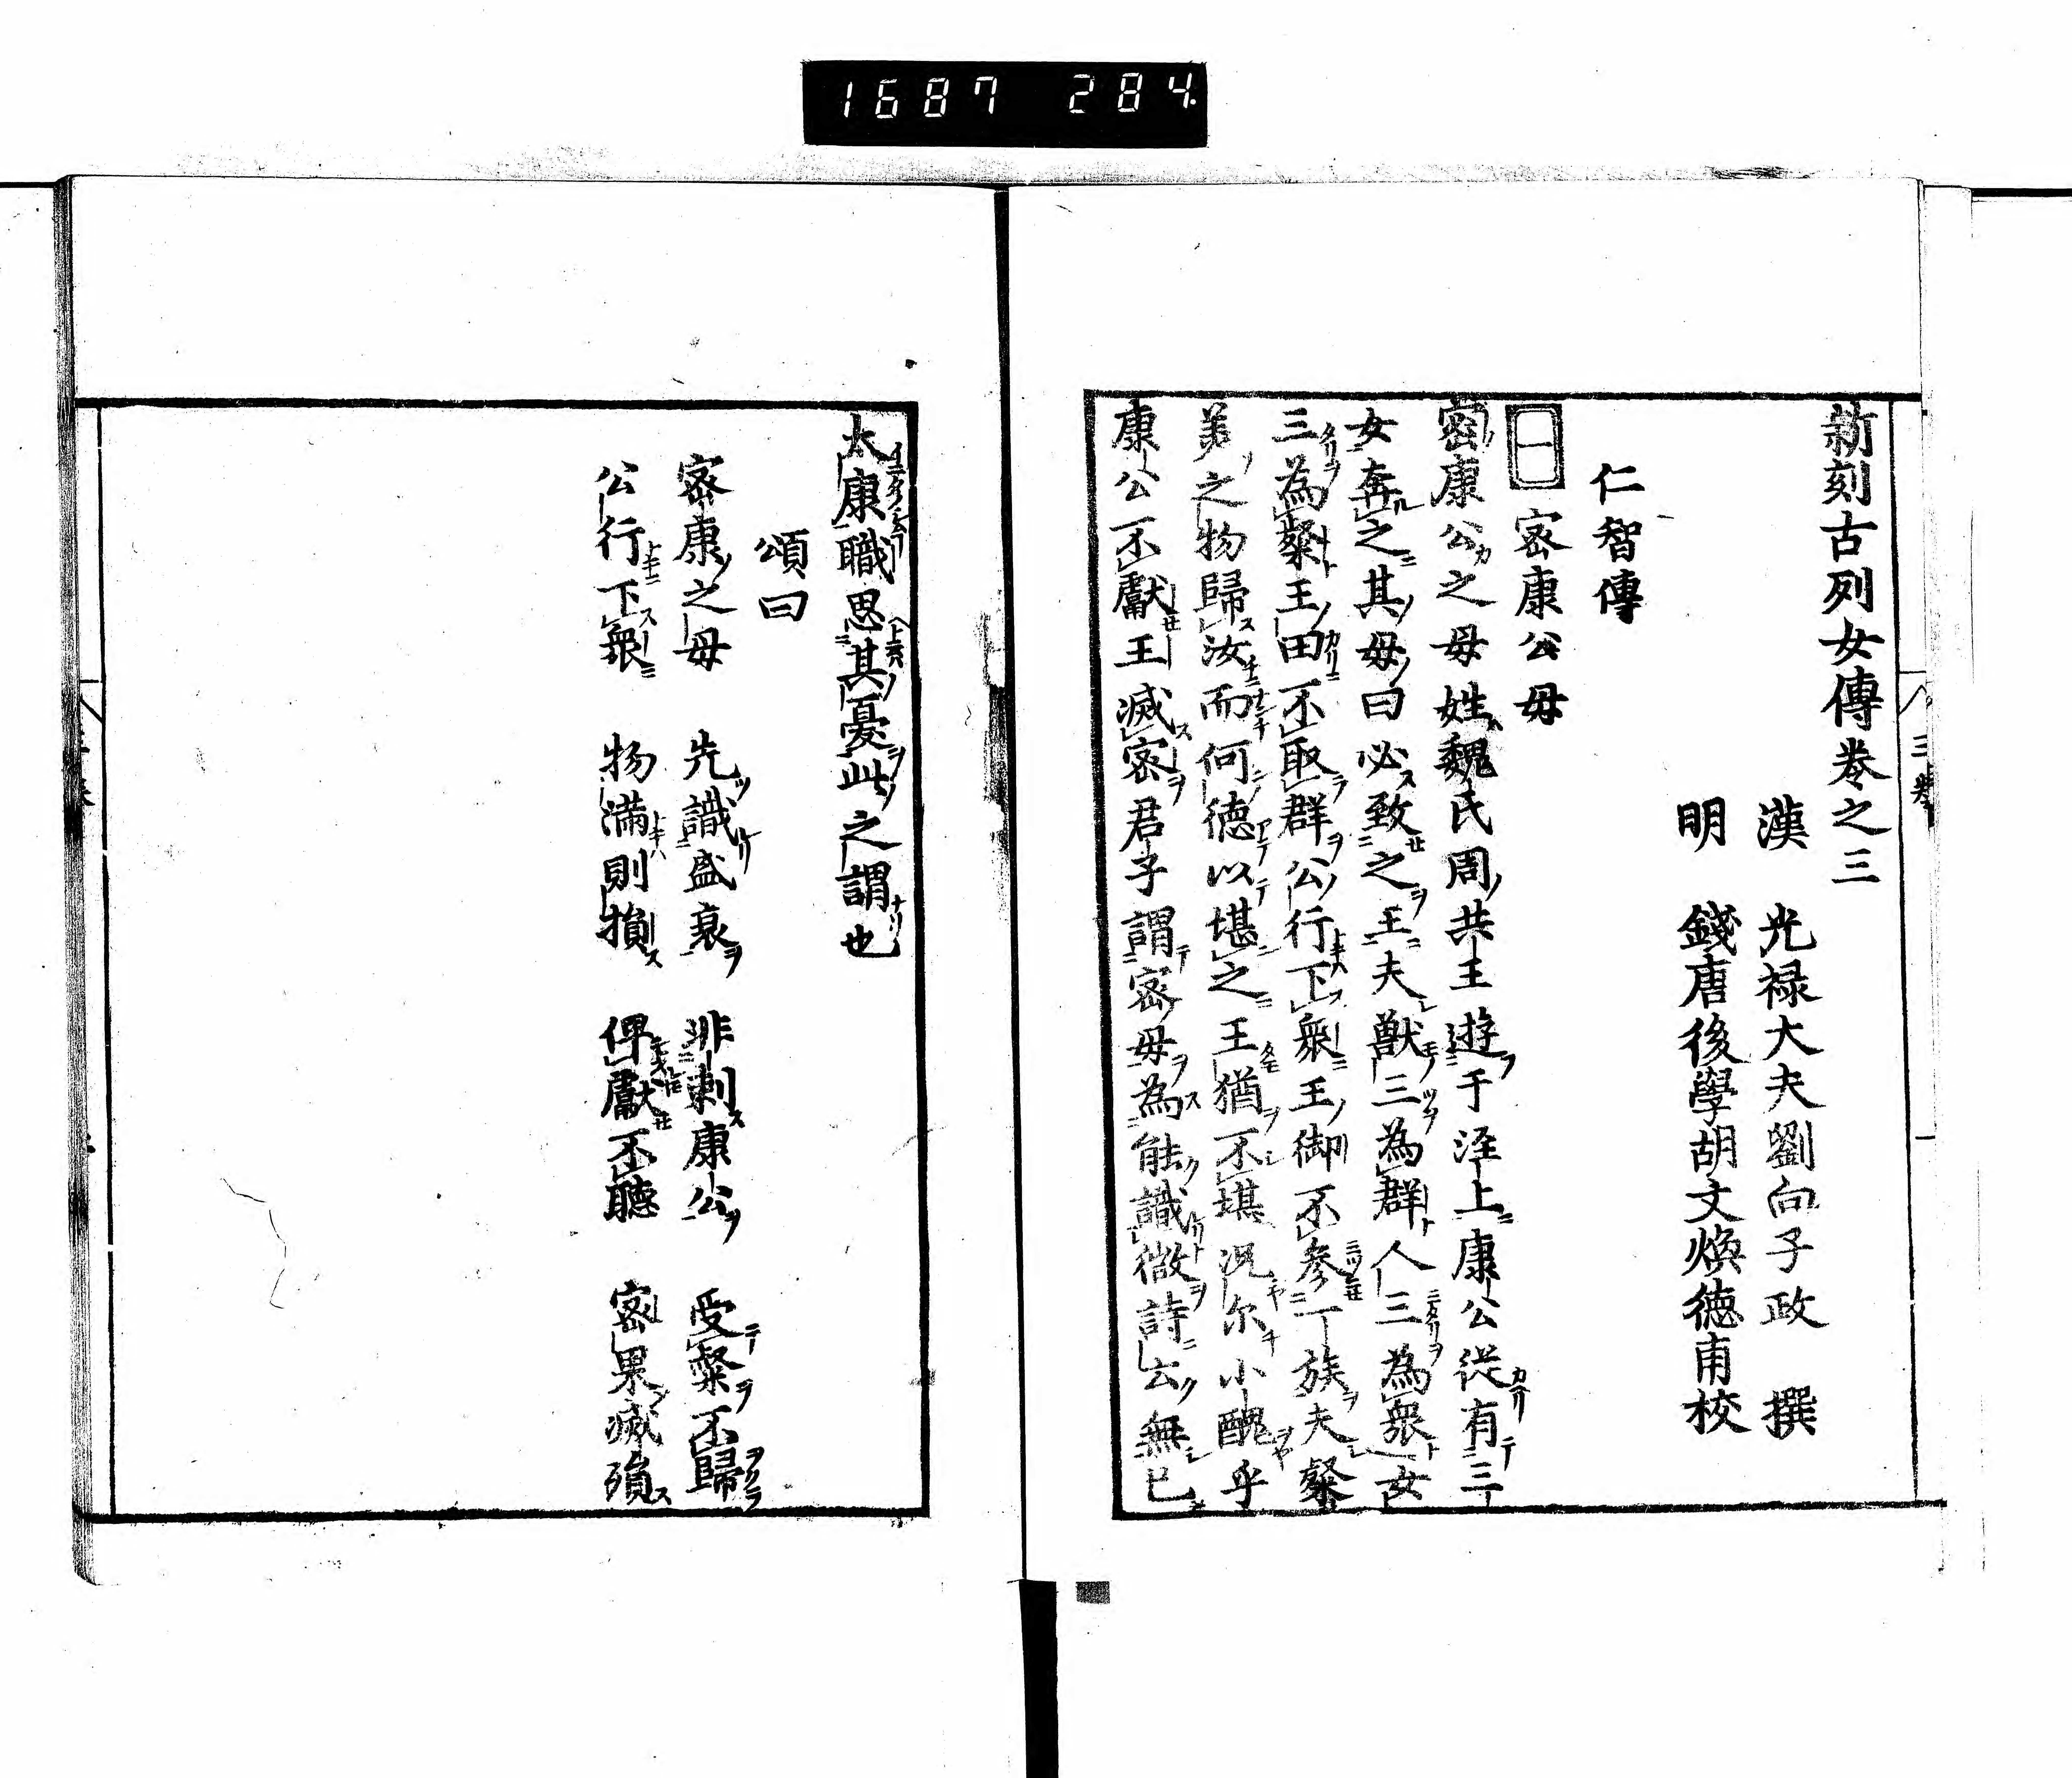 1687 284.
新刻古列女傳卷之三
漢 光祿大夫劉向子政 撰
明 錢唐後學胡文煥德甫校
仁智傳
一 密康公母
密康公之母姓魏氏周共王遊于涇上康公從有三
女奔之其母曰必致之王夫獸三為群人三為衆女
三為粲王田不取群公行下衆王御不參一族夫粲
美之物歸汝而何德以堪之王猶不堪況尔小醜乎
康公不獻王滅密君子謂密母為能識微詩云無已
太康職思其憂此之謂也
頌曰
密康之母 先識盛衰 非刺康公 受粲不歸
公行下衆 物滿則損 俾獻不聽 密果滅殞